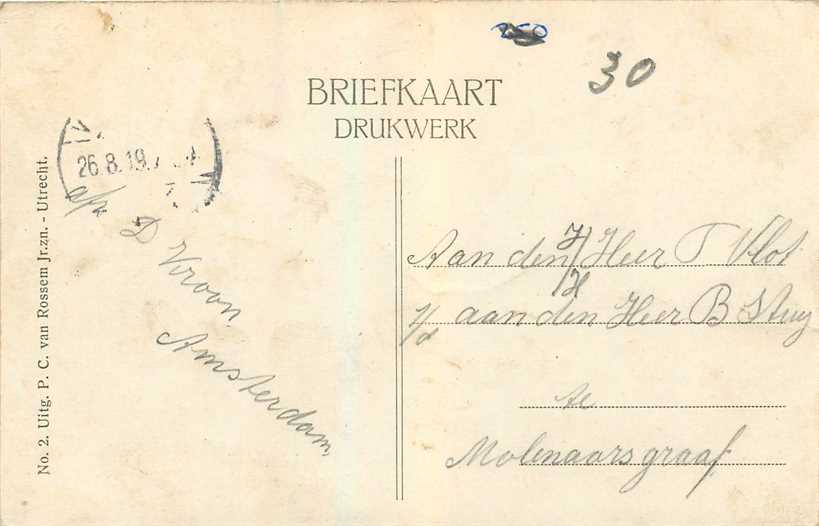 250
30
BRIEFKAART
DRUKWERK
26.8.19
afz
D Vroon
Amsterdam
Aan den Heer T Vlot
aan den Heer B Stuy
te
Molenaarsgraaf
No. 2. Uitg. P. C. van Rossem Jr.zn. - Utrecht.